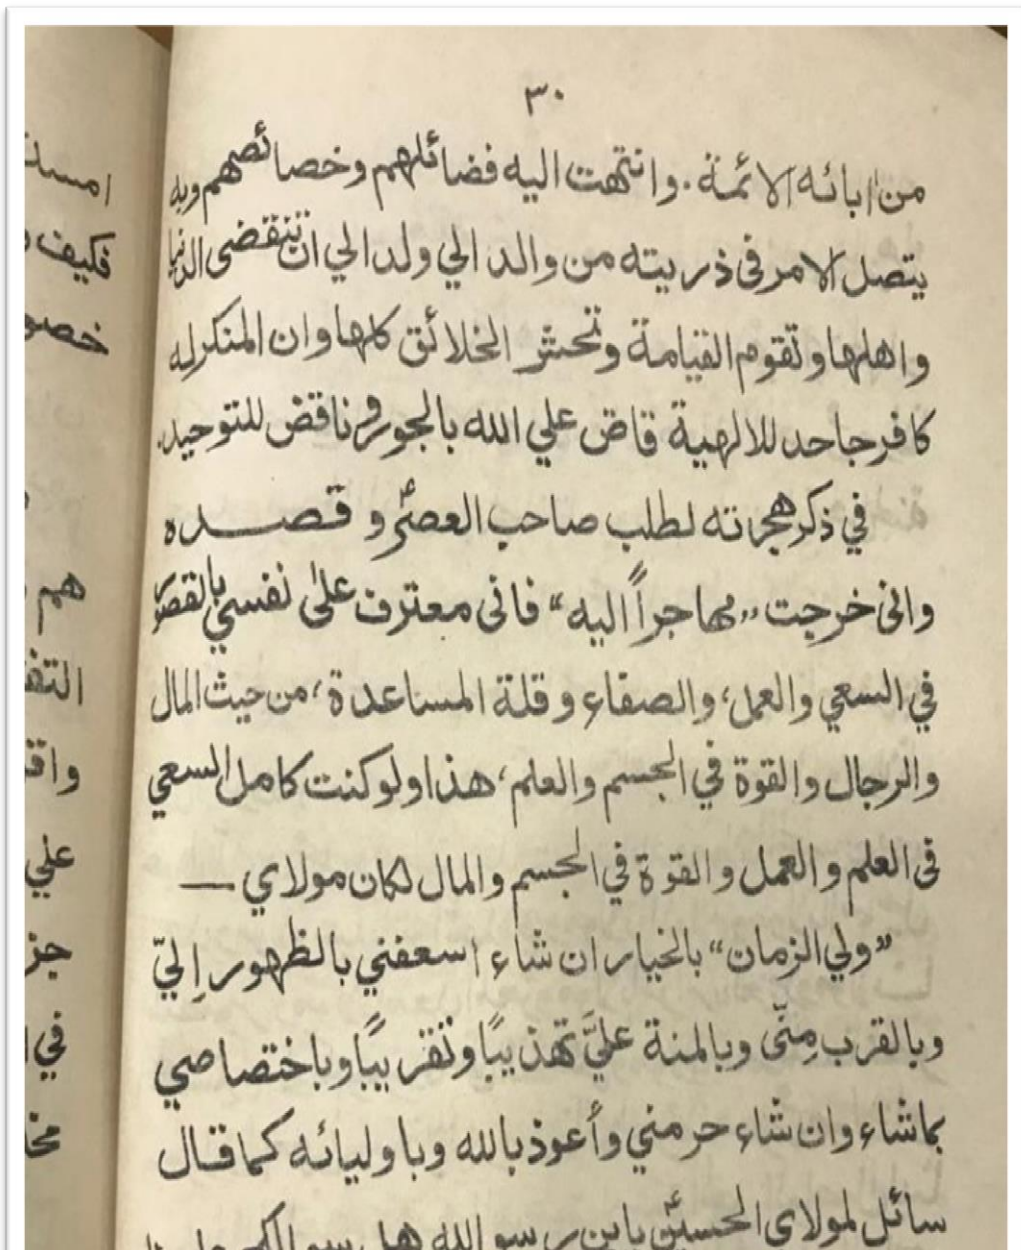 ٣٠
من ابائه الائمة. وانتهت اليه فضائلهم وخصائصهم وبه
يتصل الامر في ذريته من والد الي ولد الي ان تنقضى الدنيا
واهلها وتقوم القيامة وتحشر الخلائق كلها وان المنكر له
كافر جاحد للالهية قاض علي الله بالجور وناقض للتوحيد.
في ذكر هجرته لطلب صاحب العصر و قصده
وانى خرجت „مهاجراً اليه“ فانى معترف على نفسي بالقصور
في السعي والعمل، والصفاء وقلة المساعدة، من حيث المال
والرجال والقوة في الجسم والعلم، هذا ولو كنت كامل السعي
فى العلم والعمل والقوة في الجسم والمال لكان مولاي —
”ولي الزمان“ بالخيار ان شاء اسعفني بالظهور إليّ
وبالقرب مِنّى وبالمنة عليَّ تهذيبًا وتقريبًا وباختصاصي
بماشاء وان شاء حرمني وأعوذ بالله وباوليائه كما قال
سائل لمولاى الحسين يا بن رسو الله هل
امسك
فكيف
خصو
هم
التف
واق
علي
جز
في ا
مخا